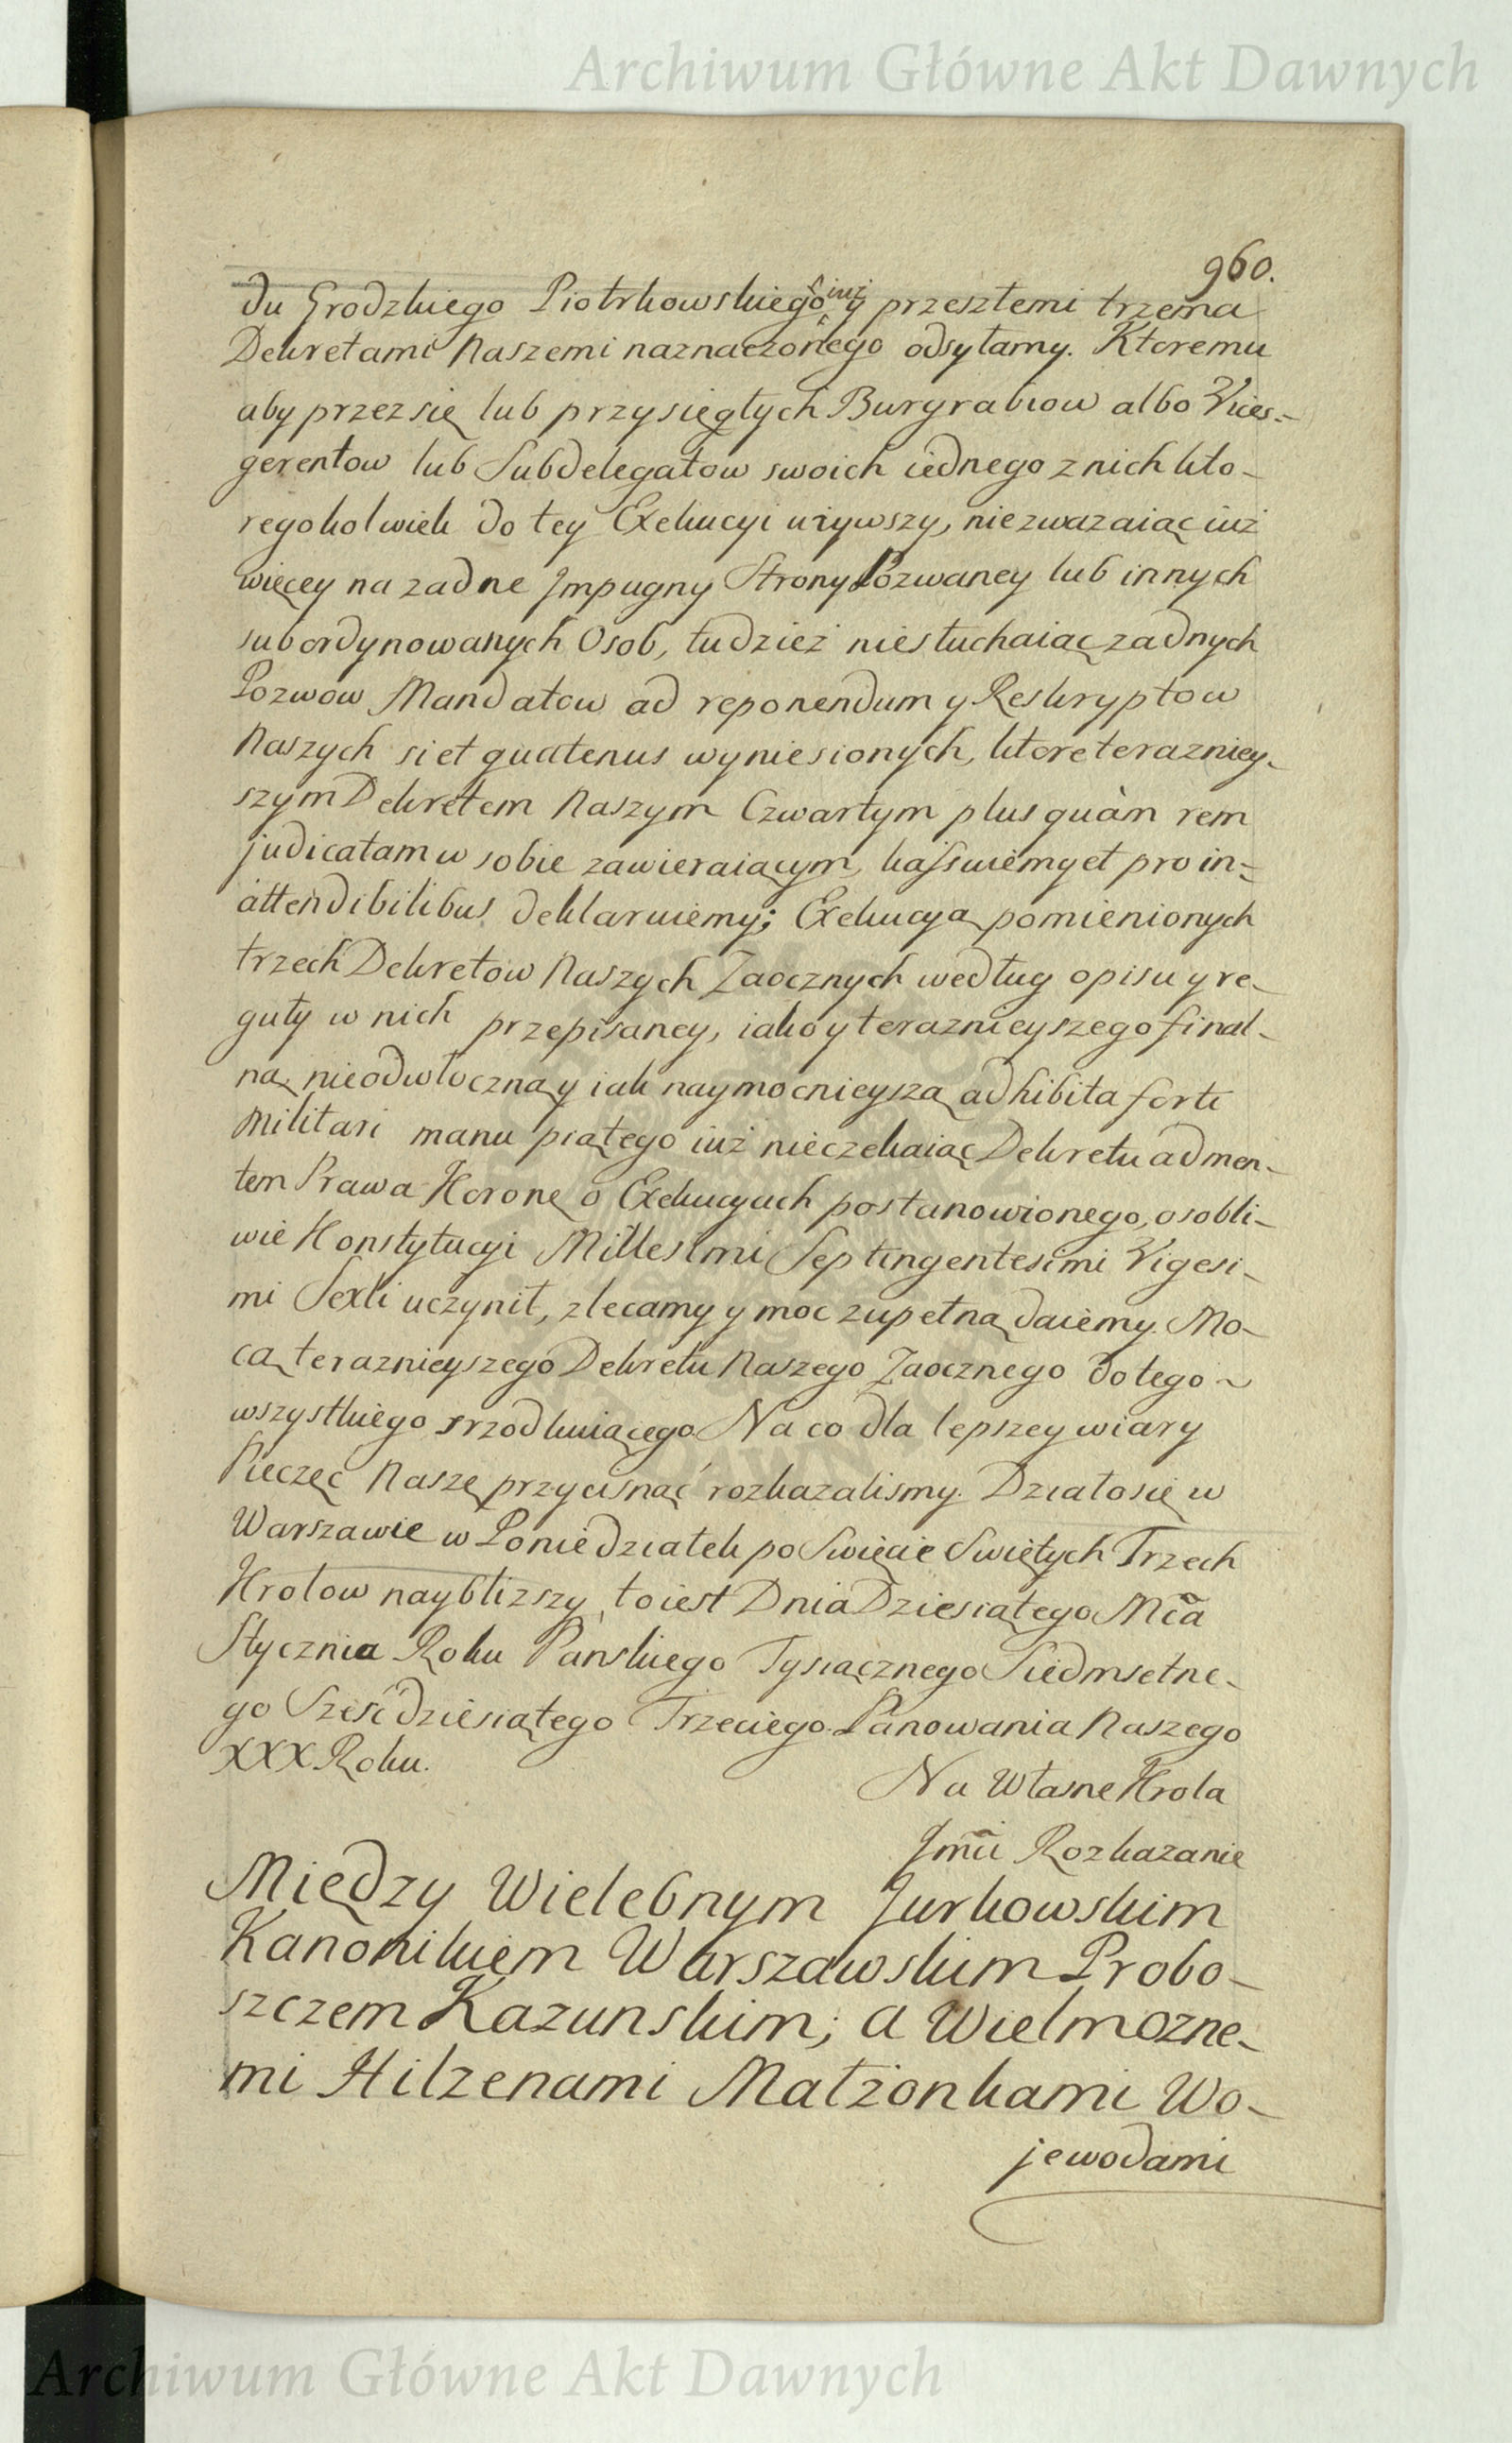 Archiwum Główne Akt Dawnych
960.
du Grodzkiego Piotrkowskiego już y przeszłemi trzema
Dekretami Naszemi naznaczonego odsyłamy. Ktoremu
aby przez się lub przysięgłych Burgrabiow albo Vices-
gerentow lub Subdelegatow swoich iednego z nich kto-
regokolwiek do tey Exekucyi używszy, niezwazaiąc iuż
więcey na zadne Impugny Strony Pozwaney lub innych
subordynowanych Osob, tudzież niesłuchaiąc zadnych
Pozwow Mandatow ad reponendum y Reskryptow
Naszych si et quatenus wyniesionych, ktore terazniey-
szym Dekretem Naszym Czwartym plus quàm rem
judicatam w sobie zawieraiącym, kassuiemy et pro in-
attendibilibus deklaruiemy; Exekucyą pomienionych
trzech Dekretow Naszych Zaocznych według opisu y re-
guły w nich przepisaney, iako y teraznieyszego final-
ną, nieodwłoczną y iak naymocnieyszą adhibita forti
Militari manu piątego iuż nieczekaiąc Dekretu ad men-
tem Prawa Koronę o Exekucyach postanowionego, osobli-
wie Konstytucyi Millesimi Septingentesimi Vigesi-
mi Sexti uczynił, zlecamy y moc zupełną daiemy. Mo-
cą teraznieyszego Dekretu Naszego Zaocznego do tego
wszystkiego srzodkuiącego. Na co dla lepszey wiary
Pieczęć Naszę przycisnąć rozkazalismy. Działo się w
Warszawie w Poniedziałek po Swięcie Swiętych Trzech
Krolow naybliższy, to iest Dnia Dziesiątego Mcã
Stycznia Roku Panskiego Tysiącznego Siedmsetne-
go Sześćdziesiątego Trzeciego. Panowania Naszego
XXX Roku.
Na Własne Krola
Jmći Rozkazanie
Między Wielebnym Jurkowskim
Kanonikiem Warszawskim Probo-
szczem Kazunskim; a Wielmozne-
mi Hilzenami Małżonkami Wo-
jewodami
Archiwum Główne Akt Dawnych